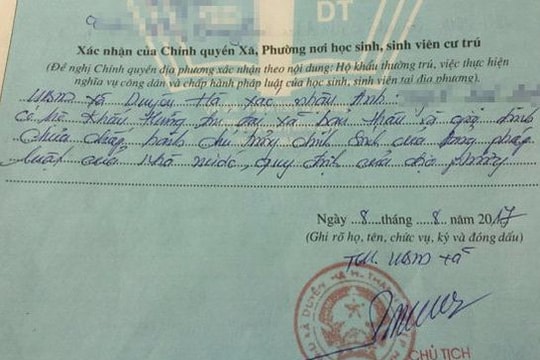 DT
Xác nhận của Chính quyền Xã, Phường nơi học sinh, sinh viên cư trú
(Đề nghị Chính quyền địa phương xác nhận theo nội dung: Hộ khẩu thường trú, việc thực hiện
nghĩa vụ công dân và chấp hành pháp luật của học sinh, sinh viên tại địa phương).
UBND xã Duyên Hà xác nhận Anh:
Có hộ khẩu thường trú tại xã bản thân và gia đình
chưa chấp hành chủ trương chính sách của Đảng pháp
luật của nhà nước, quy định của địa phương
Ngày 8 tháng 8 năm 2017
(Ghi rõ họ, tên, chức vụ, ký và đóng dấu)
TM. UBND xã
CHỦ TỊCH